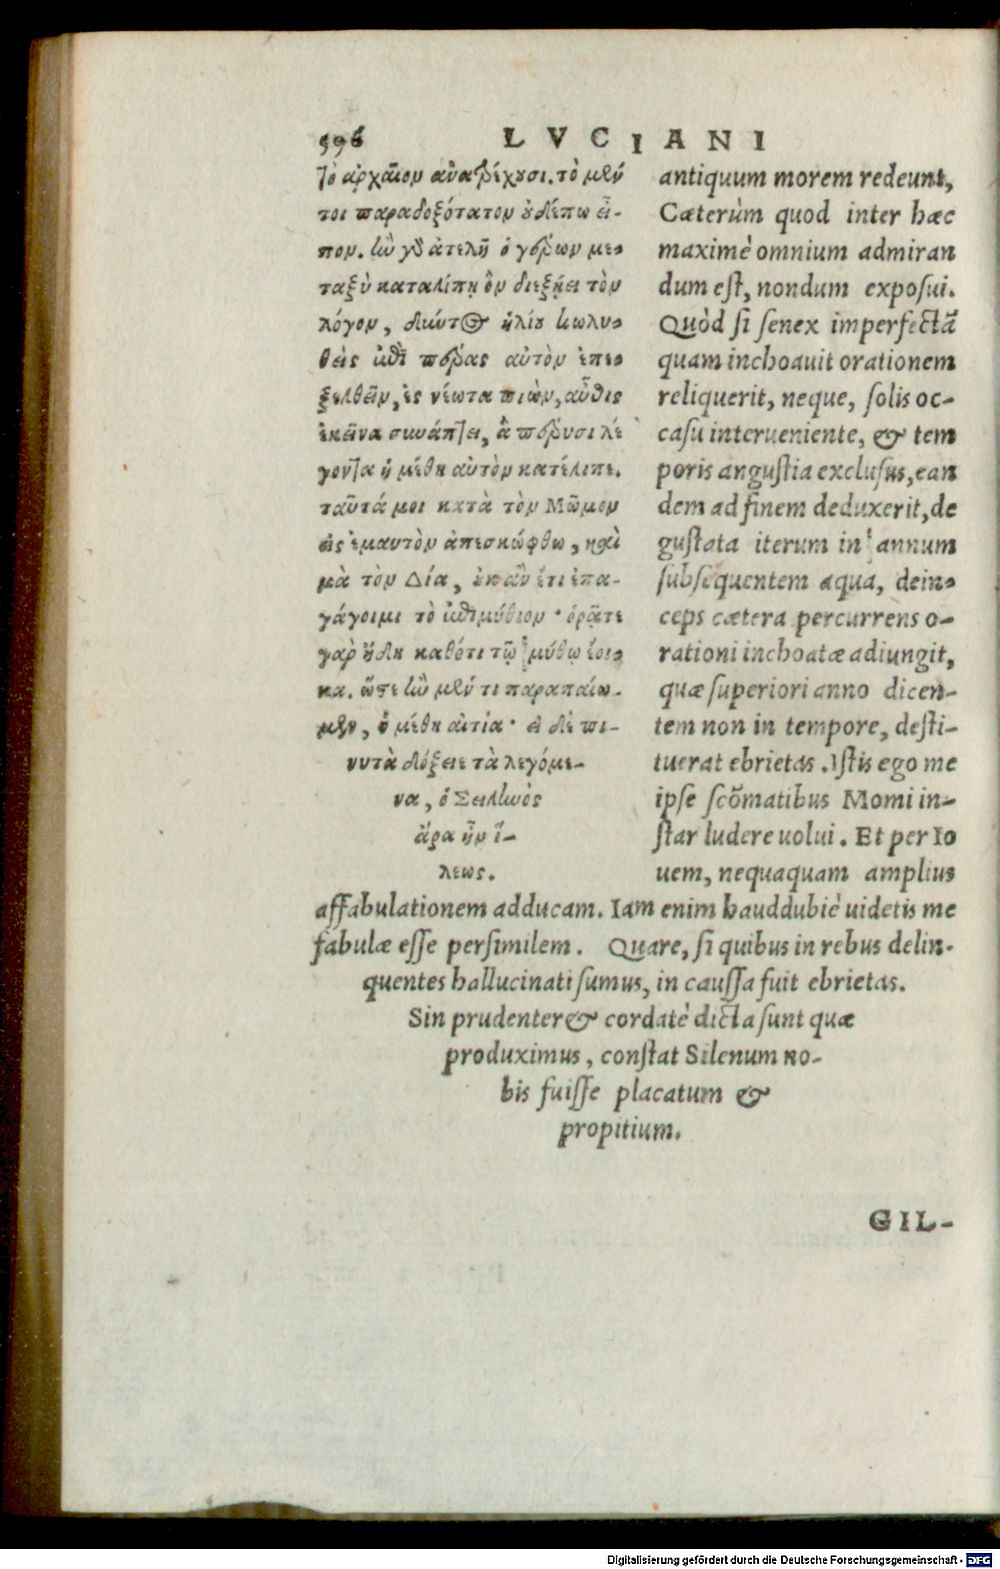 596 LVCIANI
το ἀρχαῖον ἀνατρέχουσι. τὸ μέν
τοι παραδοξότατον οὐδέπω εἶ-
πον. ἢν γὰρ ἀτελῆ ὁ γέρων με-
ταξὺ καταλίπῃ ὃν διεξῄει τὸν
λόγον, δύντος ἡλίου κωλυ-
θεὶς ἐπὶ πέρας αὐτὸν ἐπε-
ξελθεῖν, ἐς νέωτα πιὼν, αὖθις
ἐκεῖνα συνάπτει, ἃ πέρυσι λέ
γοντα ἡ μέθη αὐτὸν κατέλιπε.
ταῦτά μοι κατὰ τὸν Μῶμον
εἰς ἐμαυτὸν ἀπεσκώφθω, καὶ
μὰ τὸν Δία, οὐκ ἂν ἔτι ἐπα-
γάγοιμι τὸ ἐπιμύθιον· ὁρᾶτε
γὰρ ἤδη καθότι τῷ μύθῳ ἔοι-
κα. ὥστε ἢν μέν τι παραπαίω-
μεν, ἡ μέθη αἰτία· εἰ δὲ πι-
νυτὰ δόξειε τὰ λεγόμε-
να, ὁ Σειληνὸς
ἄρα ἦν ἵ-
λεως.
antiquum morem redeunt,
Cæterùm quod inter hæc
maximè omnium admiran
dum est, nondum exposui.
Quòd si senex imperfectã
quam inchoauit orationem
reliquerit, neque, solis oc-
casu interueniente, & tem
poris angustia exclusus, ean
dem ad finem deduxerit, de
gustata iterum in annum
subsequentem aqua, dein-
ceps cætera percurrens o-
rationi inchoatæ adiungit,
quæ superiori anno dicen-
tem non in tempore, desti-
tuerat ebrietas. Istis ego me
ipse scõmatibus Momi in-
star ludere uolui. Et per Io
uem, nequaquam amplius
affabulationem adducam. Iam enim hauddubiè uidetis me
fabulæ esse persimilem. Quare, si quibus in rebus delin-
quentes hallucinati sumus, in caussa fuit ebrietas.
Sin prudenter & cordatè dicta sunt quæ
produximus, constat Silenum no-
bis fuisse placatum &
propitium.
GIL-
Digitalisierung gefördert durch die Deutsche Forschungsgemeinschaft - DFG